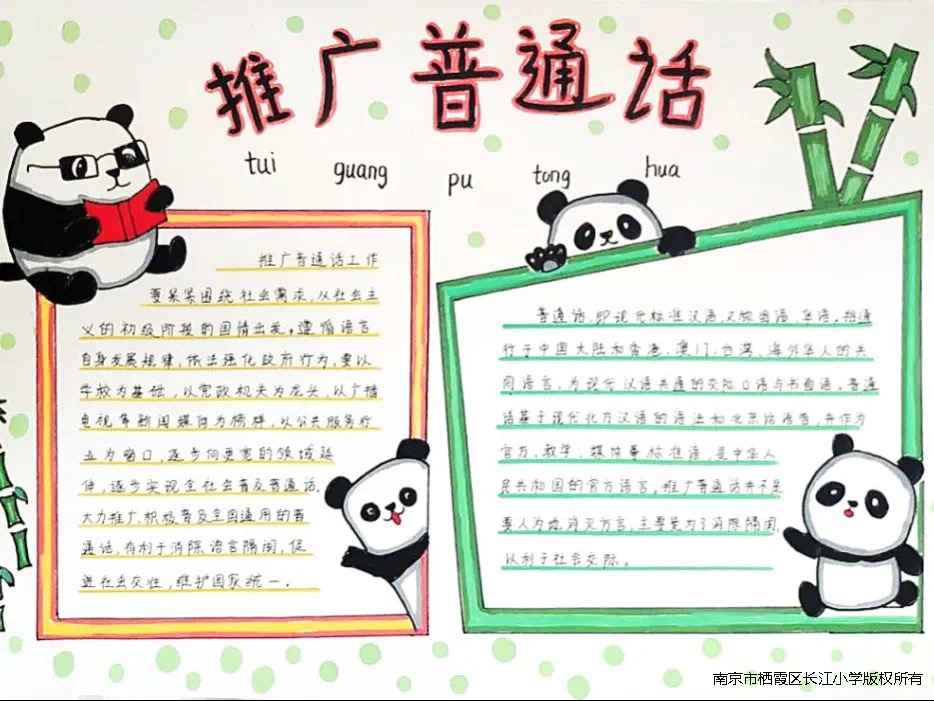 推广普通话
tui guang pu tong hua
推广普通话工作
要紧紧围绕社会需求,从社会主
义的初级阶段的国情出发。遵循语言
自身发展规律,依法强化政府行为,要以
学校为基础,以党政机关为龙头,以广播
电视等新闻媒体为榜样,以公共服务行
业为窗口,逐步向更宽的领域延
伸,逐步实现全社会普及普通话.
大力推广,积极普及全国通用的普
通话,有利于消除语言隔阂,促
进社会交往,维护国家统一.
普通话,即现代标准汉语,又称国语、华语,指通
行于中国大陆和香港、澳门、台湾、海外华人的共
同语言,为现代汉语共通的交际口语与书面语。普通
话基于现代北方汉语的语法和北京话语音,并作为
官方、教学、媒体等标准语,是中华人
民共和国的官方语言。推广普通话并不是
要人为地消灭方言,主要是为了消除隔阂,
以利于社会交际。
南京市栖霞区长江小学版权所有